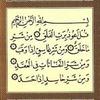 بسم الله الرحمن الرحيم
قل أعوذ برب الفلق من شر
ما خلق ومن شر غاسق إذا وقب
ومن شر النفاثات في العقد
ومن شر حاسد إذا حسد